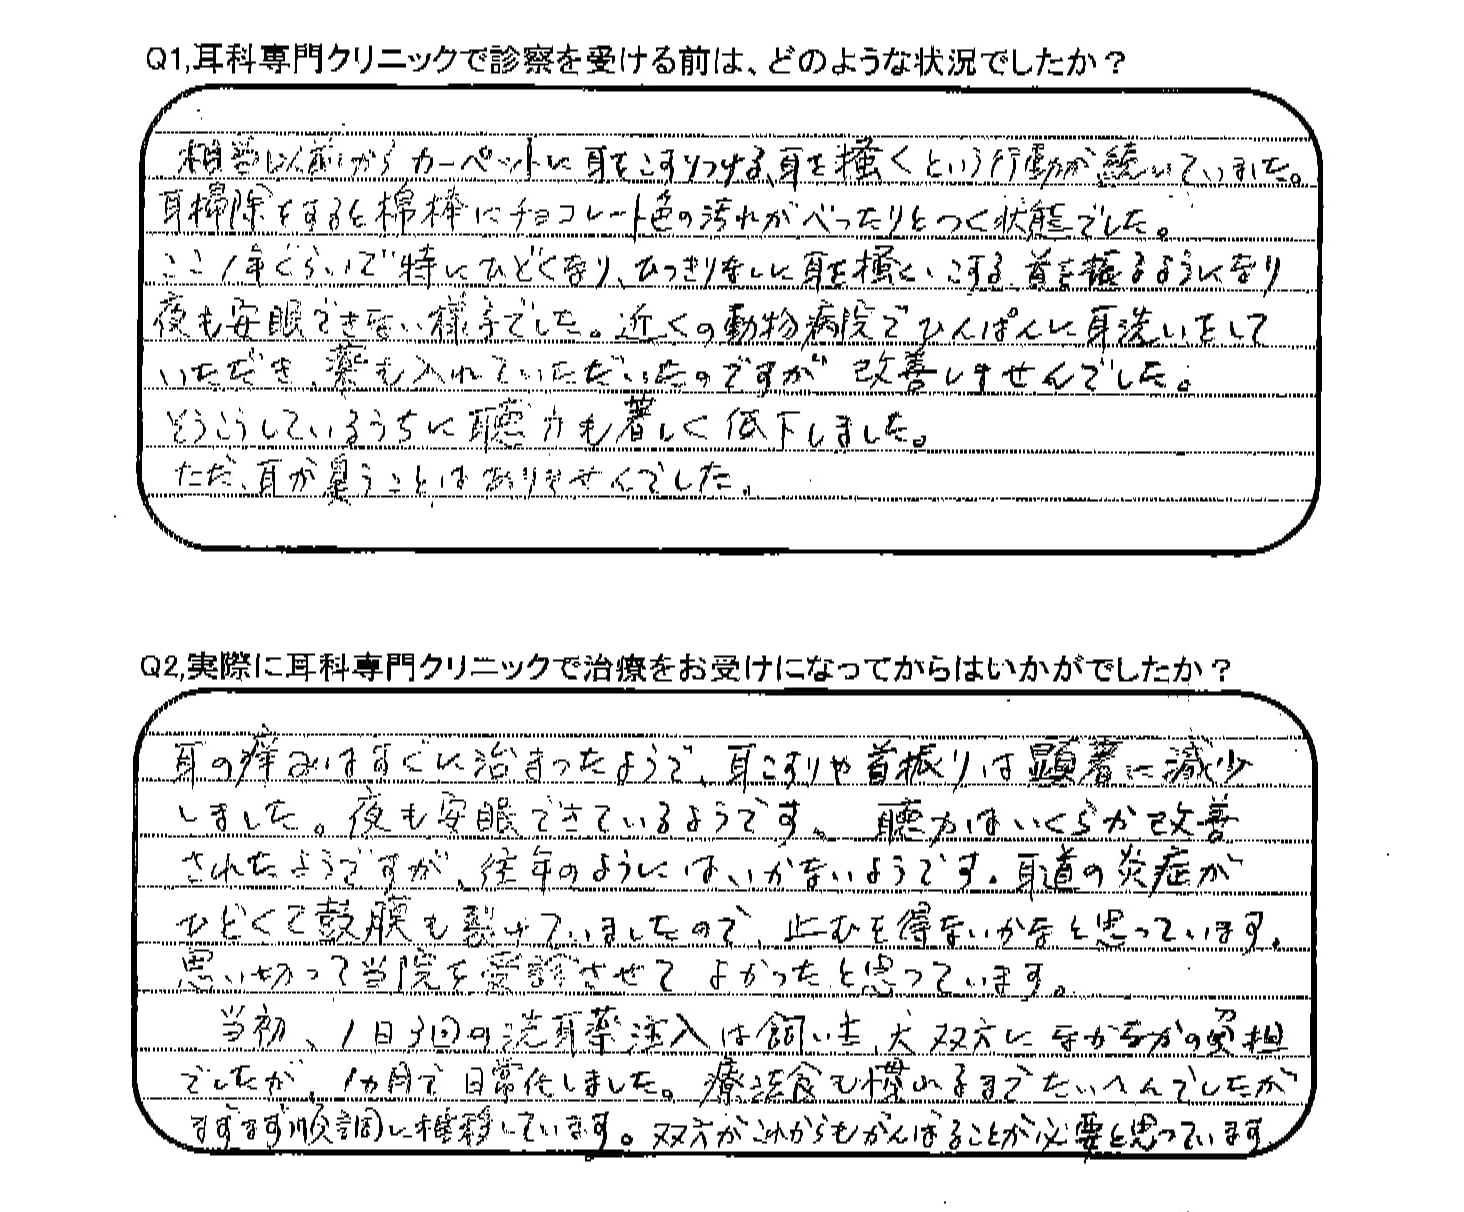 Q1,耳科専門クリニックで診察を受ける前は、どのような状況でしたか？
相当以前からカーペットに耳をこすりつける、耳を掻くという行動が続いていました。
耳掃除をすると綿棒にチョコレート色の汚れがべったりとつく状態でした。
ここ1年ぐらいで特にひどくなり、ひっきりなしに耳を掻く、こする、首を振るようになり
夜も安眠できない様子でした。近くの動物病院でひんぱんに耳洗いをして
いただき、薬も入れていただいたのですが改善しませんでした。
そうこうしているうちに聴力も著しく低下しました。
ただ、耳が臭うことはありませんでした。
Q2,実際に耳科専門クリニックで治療をお受けになってからはいかがでしたか？
耳の痒みはすぐに治まったようで、耳こすりや首振りは顕著に減少
しました。夜も安眠できているようです。聴力はいくらか改善
されたようですが、往年のようにはいかないようです。耳道の炎症が
ひどくて鼓膜も裂けていましたので、止むを得ないかなと思っています。
思い切って当院を受診させてよかったと思っています。
当初、1日3回の洗耳薬注入は飼い主、犬双方になかなかの負担
でしたが、1カ月で日常化しました。療法食も慣れるまでたいへんでしたが
まずまず順調に推移しています。双方がこれからもがんばることが必要と思っています